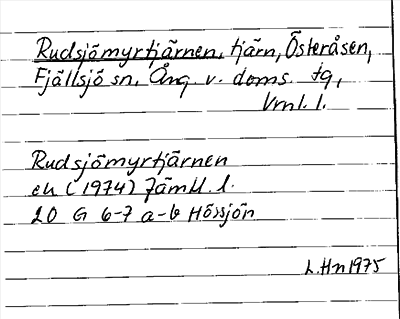 Rudsjömyrtjärnen, tjärn, Österåsen,
Fjällsjö sn. Ång v. doms. tg,
Vnl. l.
Rudsjömyrtjärnen
ek (1974) Jämtl. l.
20 G 6-7 a-b Hössjön
L.Hn 1975